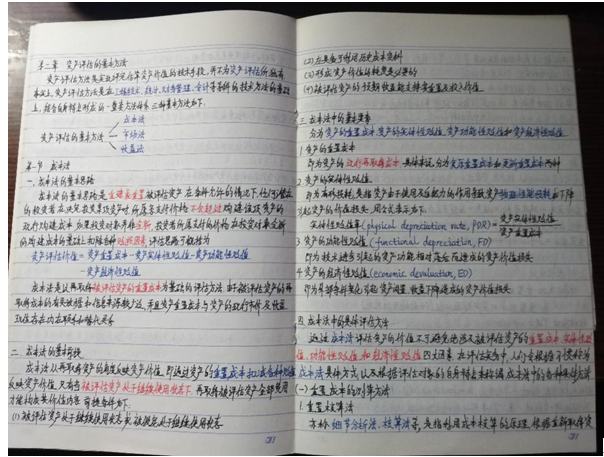 第二章 资产评估的基本方法
资产评估方法是实现评定估算资产价值的技术手段,并不为资产评估所独有
本质上,资产评估方法是在工程技术、统计、财务管理、会计等学科的技术方法的基础
上,结合自身特点形成的一整套方法体系 三种基本方法如下.
资产评估的基本方法
成本法
市场法
收益法
第一节 成本法
一、成本法的基本思路
成本法的基本思路是重建或重置被评估资产 在条件允许的情况下,任何潜在
的投资者在决定投资某项资产时,所愿意支付的价格不会超过购建该项资产的
现行购建成本 如果投资对象并非全新,投资者所愿支付的价格在投资对象全新
的购建成本的基础上扣除各种贬值因素,评估思路可概括为
资产评估价值=资产重置成本-资产实体性贬值-资产功能性贬值
-资产经济性贬值
成本法是以再取得被评估资产的重置成本为基础的评估方法 由于被评估资产的再
取得成本的有关数据和信息来源较广泛,并且资产重置成本与资产的现行市价及收益
现值存在内在联系和替代关系
二、成本法的基本前提
成本法从再取得资产的角度反映资产价值,即通过资产的重置成本扣减各种贬值
反映资产价值,只有当被评估资产处于继续使用状态下,再取得被评估资产的全部费用
才能构成其价值内容 前提条件如下.
(1)被评估资产处于继续使用状态或被假定处于继续使用状态
31
(2)应具备可利用历史成本资料
(3)形成资产价值的耗费是必要的
(4)被评估资产的预期收益能支持其重置及投入价值
三、成本法中的基本要素
分为资产的重置成本、资产的实体性贬值、资产功能性贬值和资产经济性贬值
1.资产的重置成本
即为资产的现行再取得成本 具体来说,分为复原重置成本和更新重置成本两种
2.资产的实体性贬值
即为有形损耗,是指资产由于使用及自然力的作用导致资产物理性能损耗和下降
引起资产的价值损失,用公式表示如下.
实体性贬值率(physical depreciation rate, PDR)=资产实体性贬值/资产重置成本
3.资产的功能性贬值(functional depreciation, FD)
即为技术进步引起的资产功能相对落后而造成的资产价值损失
4.资产的经济性贬值(economic devaluation, ED)
即为外部条件变化引起资产闲置、收益下降造成的资产价值损失
四、成本法中的具体评估方法
通过成本法评估资产的价值不可避免地涉及被评估资产的重置成本、实体性贬
值、功能性贬值和经济性贬值四大因素
(一)重置成本的测算方法
1.重置核算法
亦称细节分析法、核算法等,是指利用成本核算的原理,根据重新取得资
31